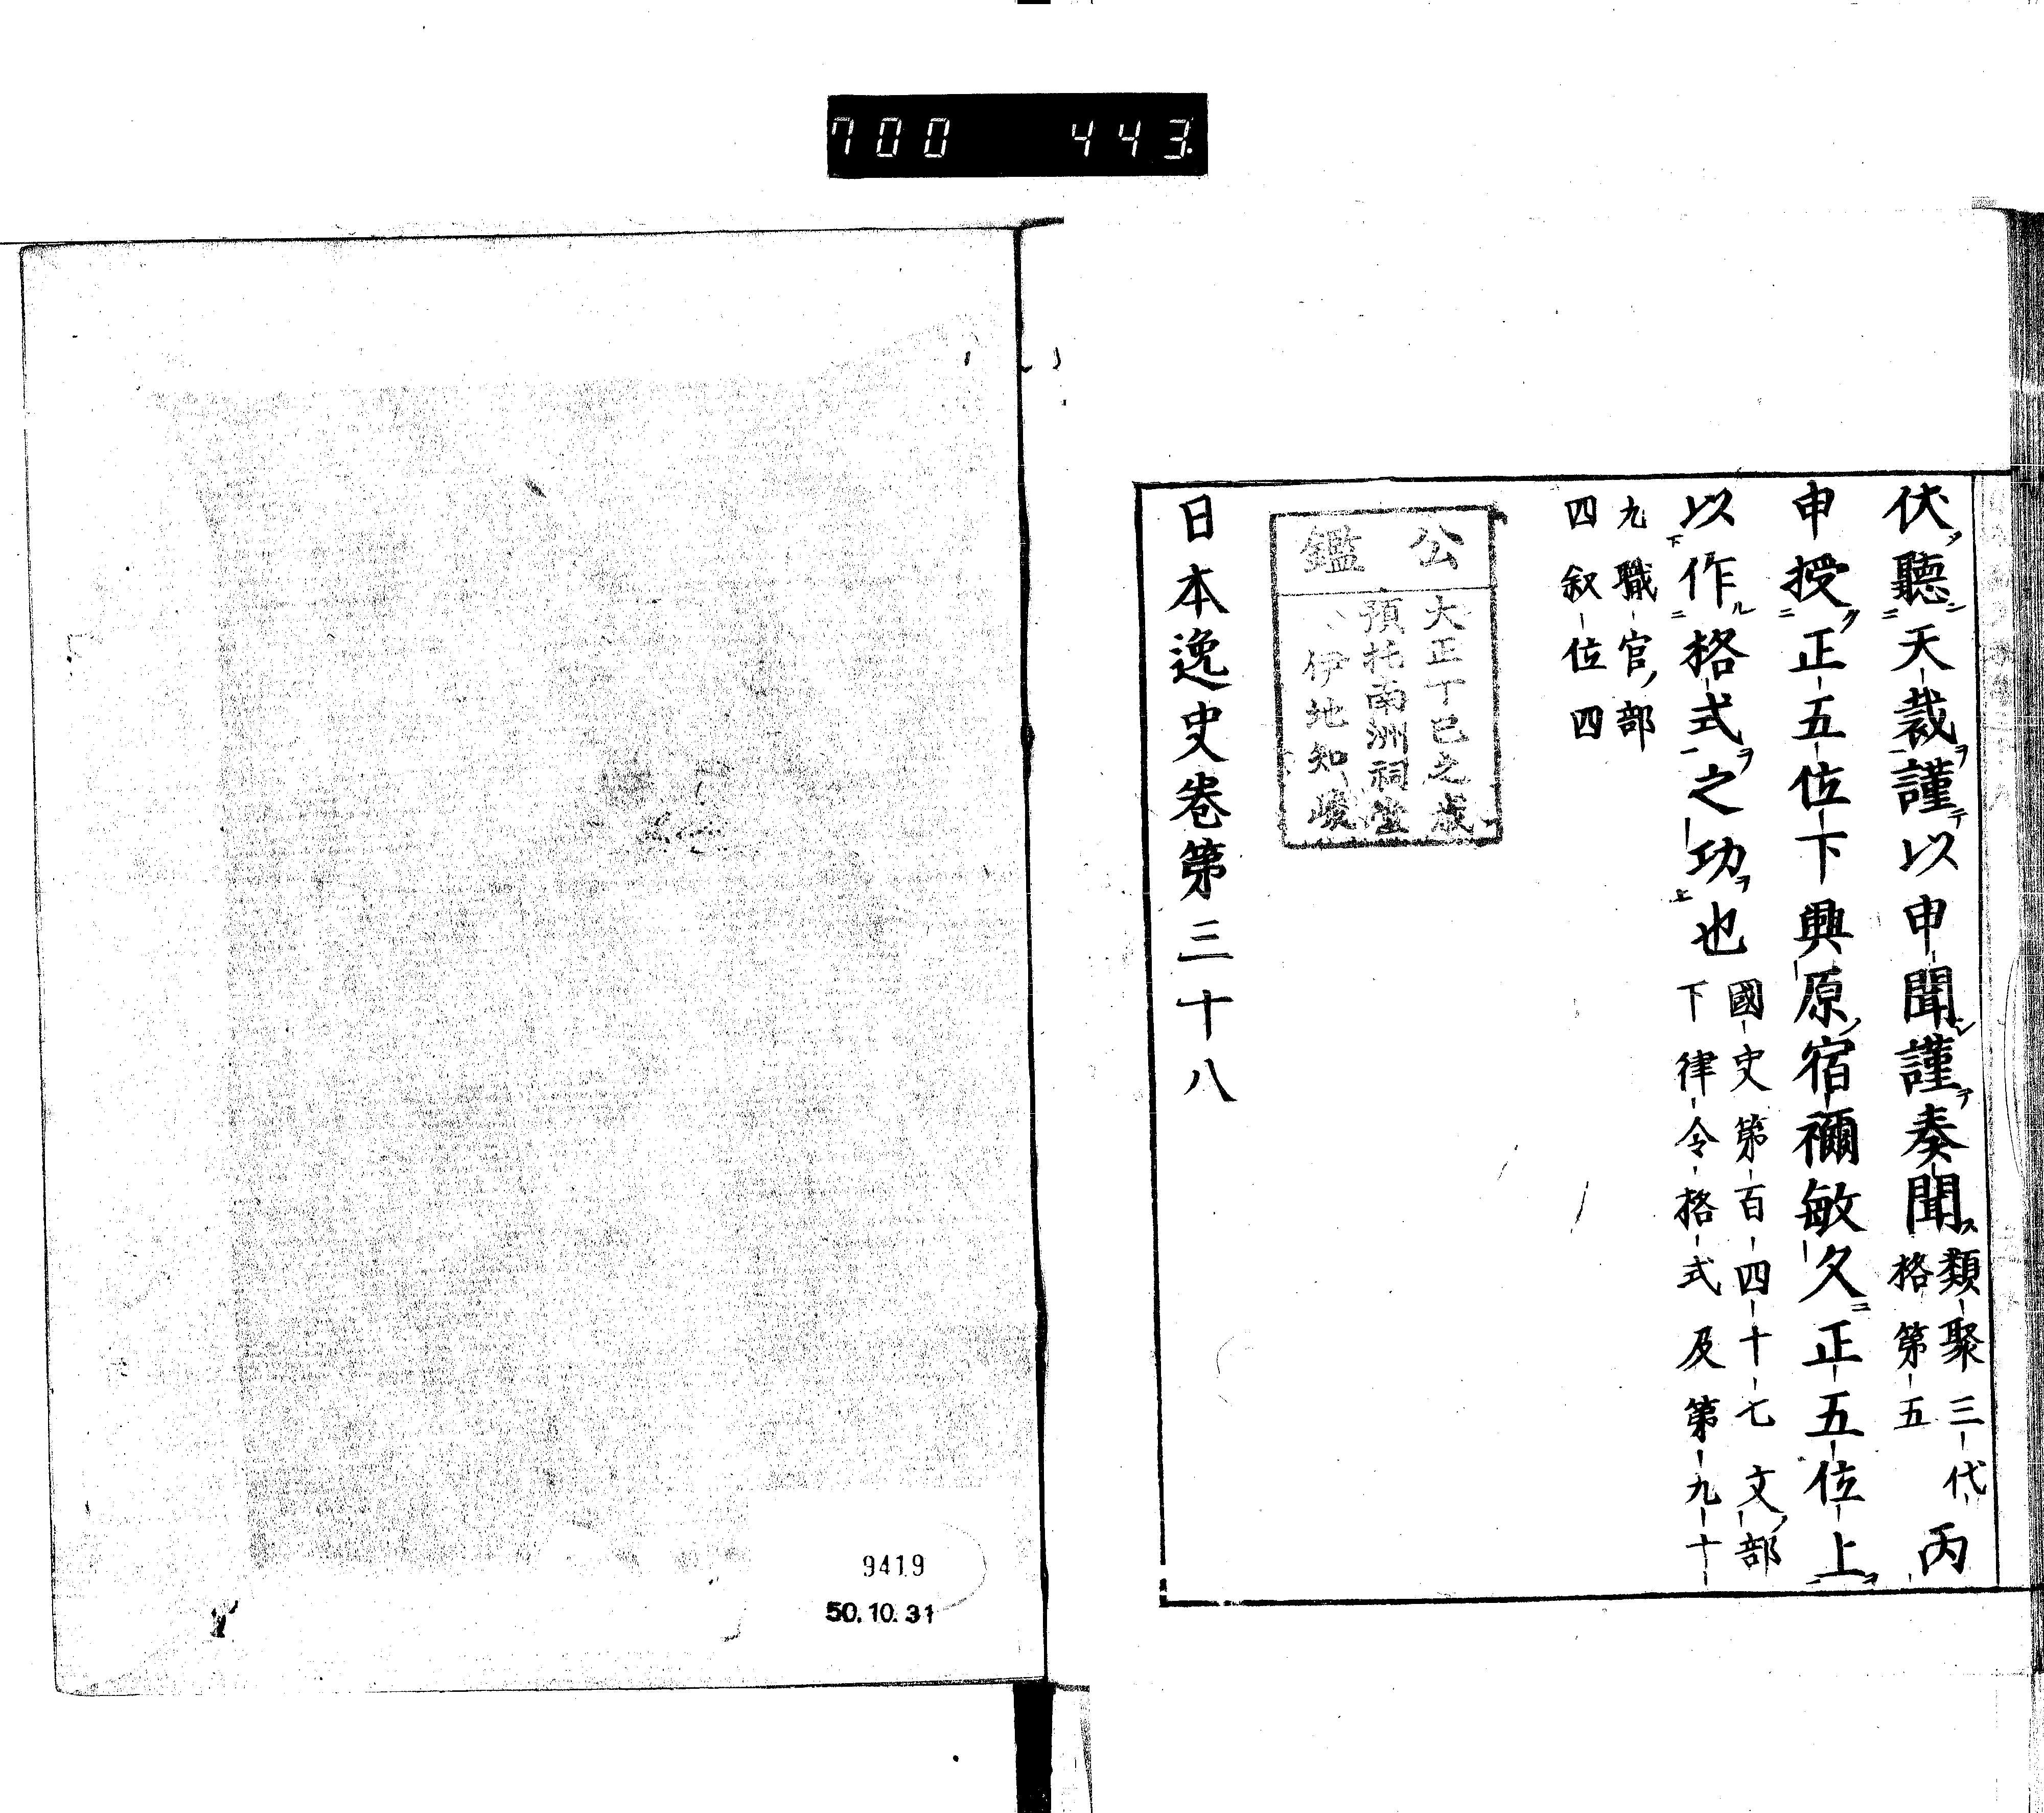 700 443
伏聽天裁謹以申聞謹奏聞類聚三代格第五 丙
申授正五位下興原宿禰敏久正五位上
以作格式之功也國史第百四十七文部下律令格式及第九十
九職官部
四叙位四
公鑑
大正丁巳之歳
預托南洲祠堂
伊地知峻
日本逸史卷第三十八
9419
50.10.31